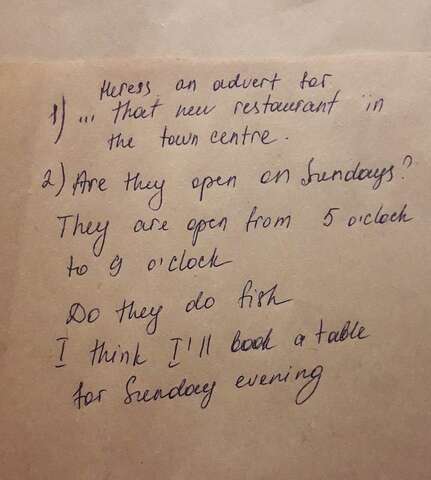 Heress an advert for
1) ... that new restaurant in
the town centre.
2) Are they open on Sundays?
They are open from 5 o'clock
to 9 o'clock
Do they do fish
I think I'll book a table
for Sunday evening